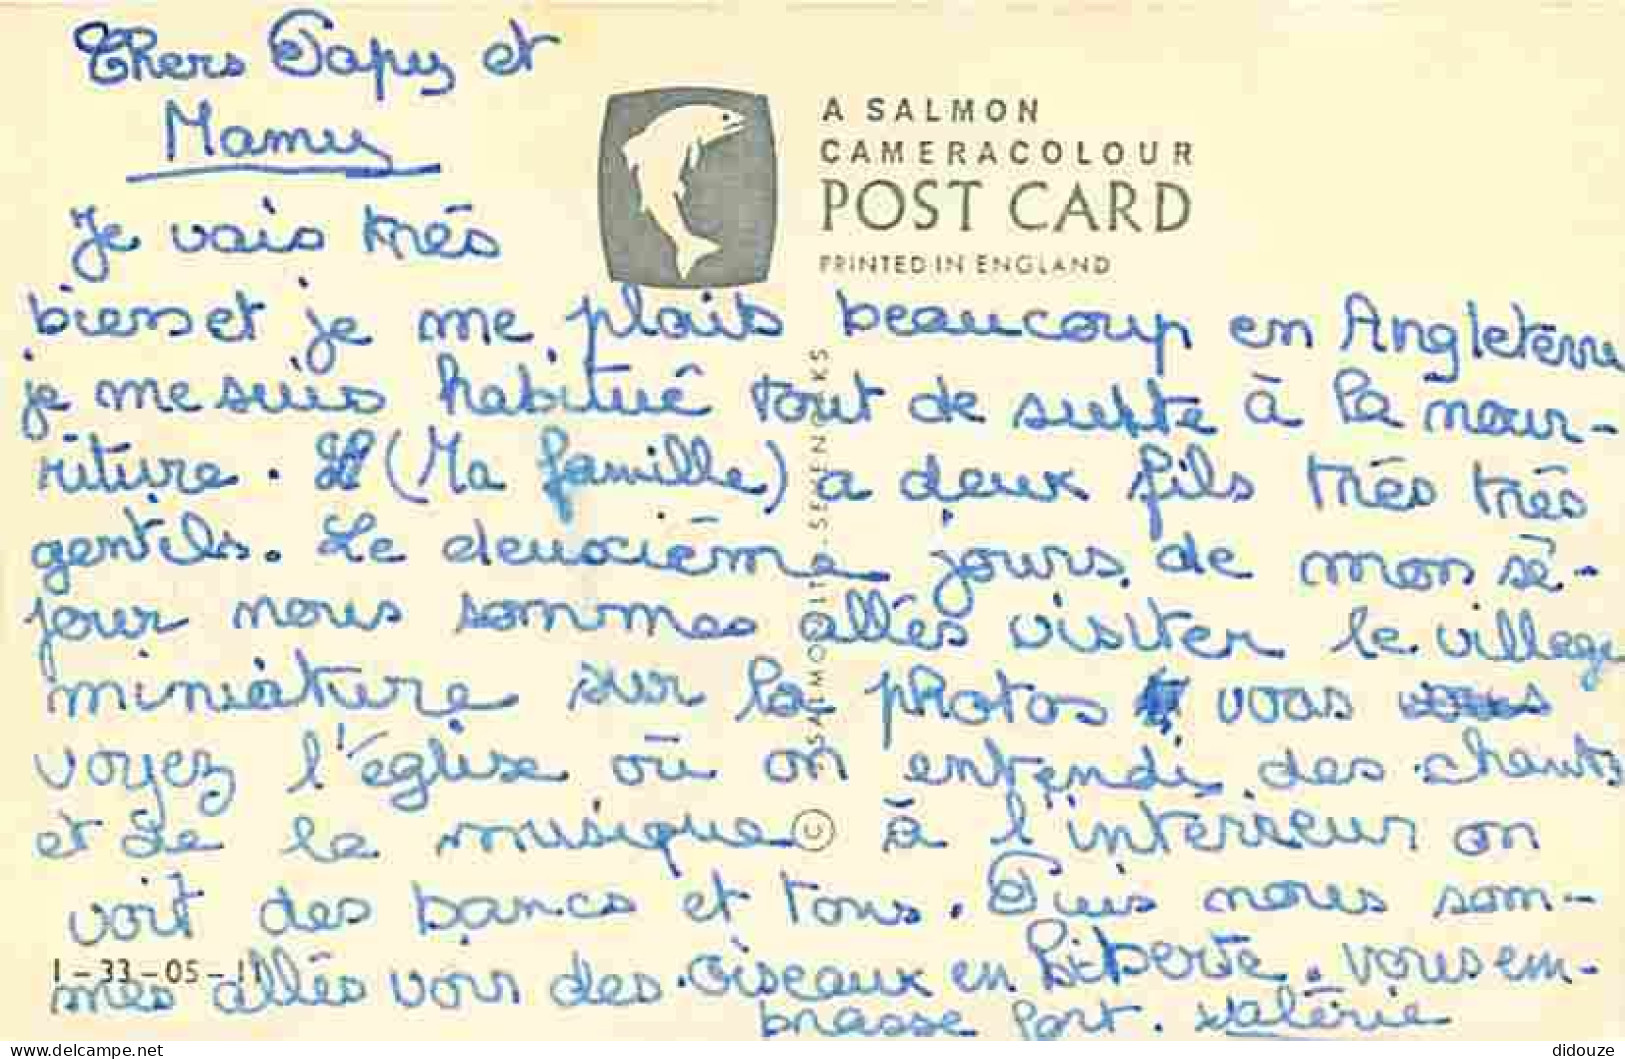 Chers Papy et
Mamy
Je vais très
bien et je me plais beaucoup en Angleterre
je me suis habitué tout de suitte à la nour-
riture. (Ma famille) a deux fils très très
gentils. Le deuxième jours de mon sé-
jour nous sommes allés visiter le village
miniature sur la photos vous
voyez l'église où on entendi des chants
et de la musique à l'intérieur on
voit des bancs et tous. Puis nous som-
mes allés voir des oiseaux en Liberté. Vous em-
brasse fort. Valérie
A SALMON
CAMERACOLOUR
POST CARD
PRINTED IN ENGLAND
© J SALMON LTD SEVENOAKS
1-33-05-11
delcampe.net
didouze